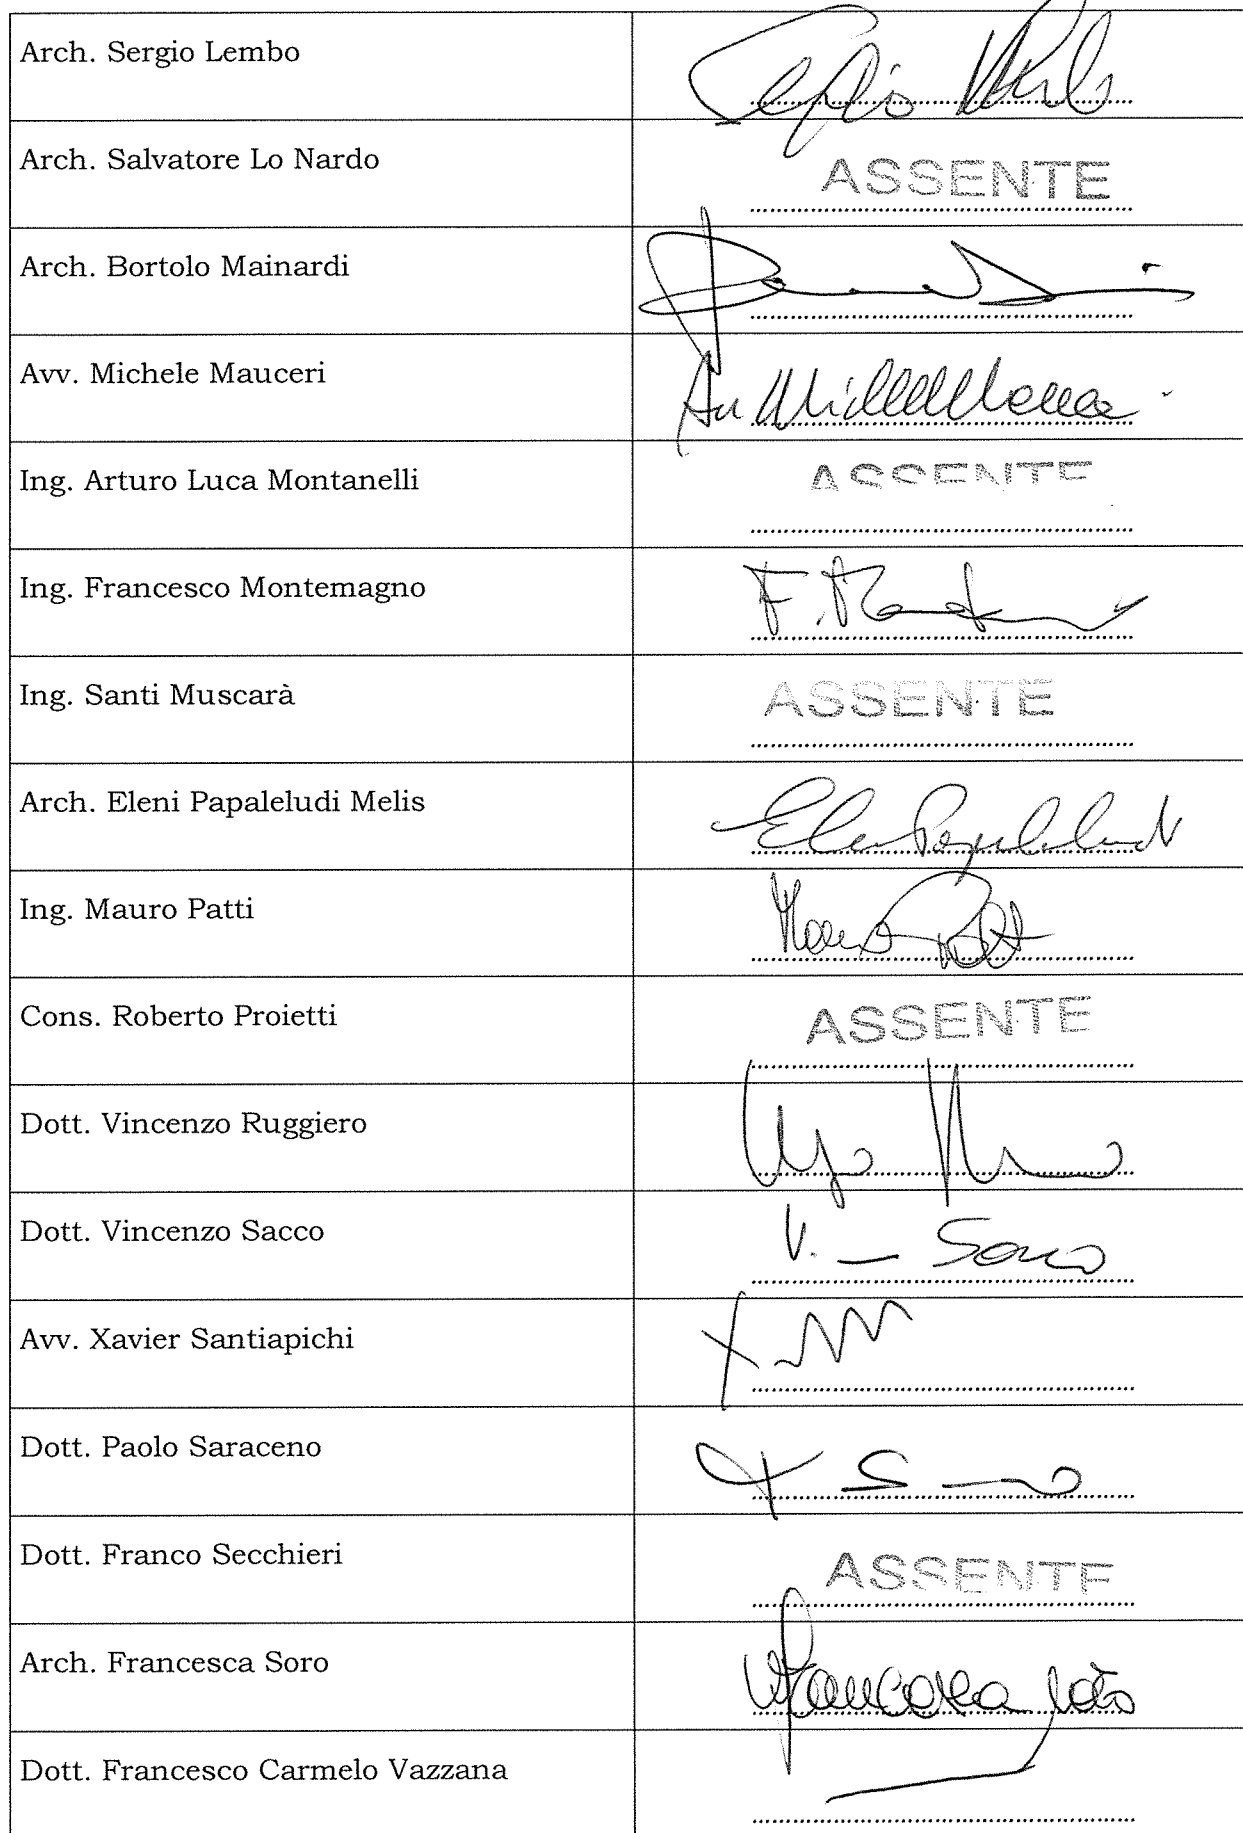 Arch. Sergio Lembo
Arch. Salvatore Lo Nardo
ASSENTE
Arch. Bortolo Mainardi
Avv. Michele Mauceri
Ing. Arturo Luca Montanelli
ASSENTE
Ing. Francesco Montemagno
Ing. Santi Muscarà
ASSENTE
Arch. Eleni Papaleludi Melis
Ing. Mauro Patti
Cons. Roberto Proietti
ASSENTE
Dott. Vincenzo Ruggiero
Dott. Vincenzo Sacco
Avv. Xavier Santiapichi
Dott. Paolo Saraceno
Dott. Franco Secchieri
ASSENTE
Arch. Francesca Soro
Dott. Francesco Carmelo Vazzana